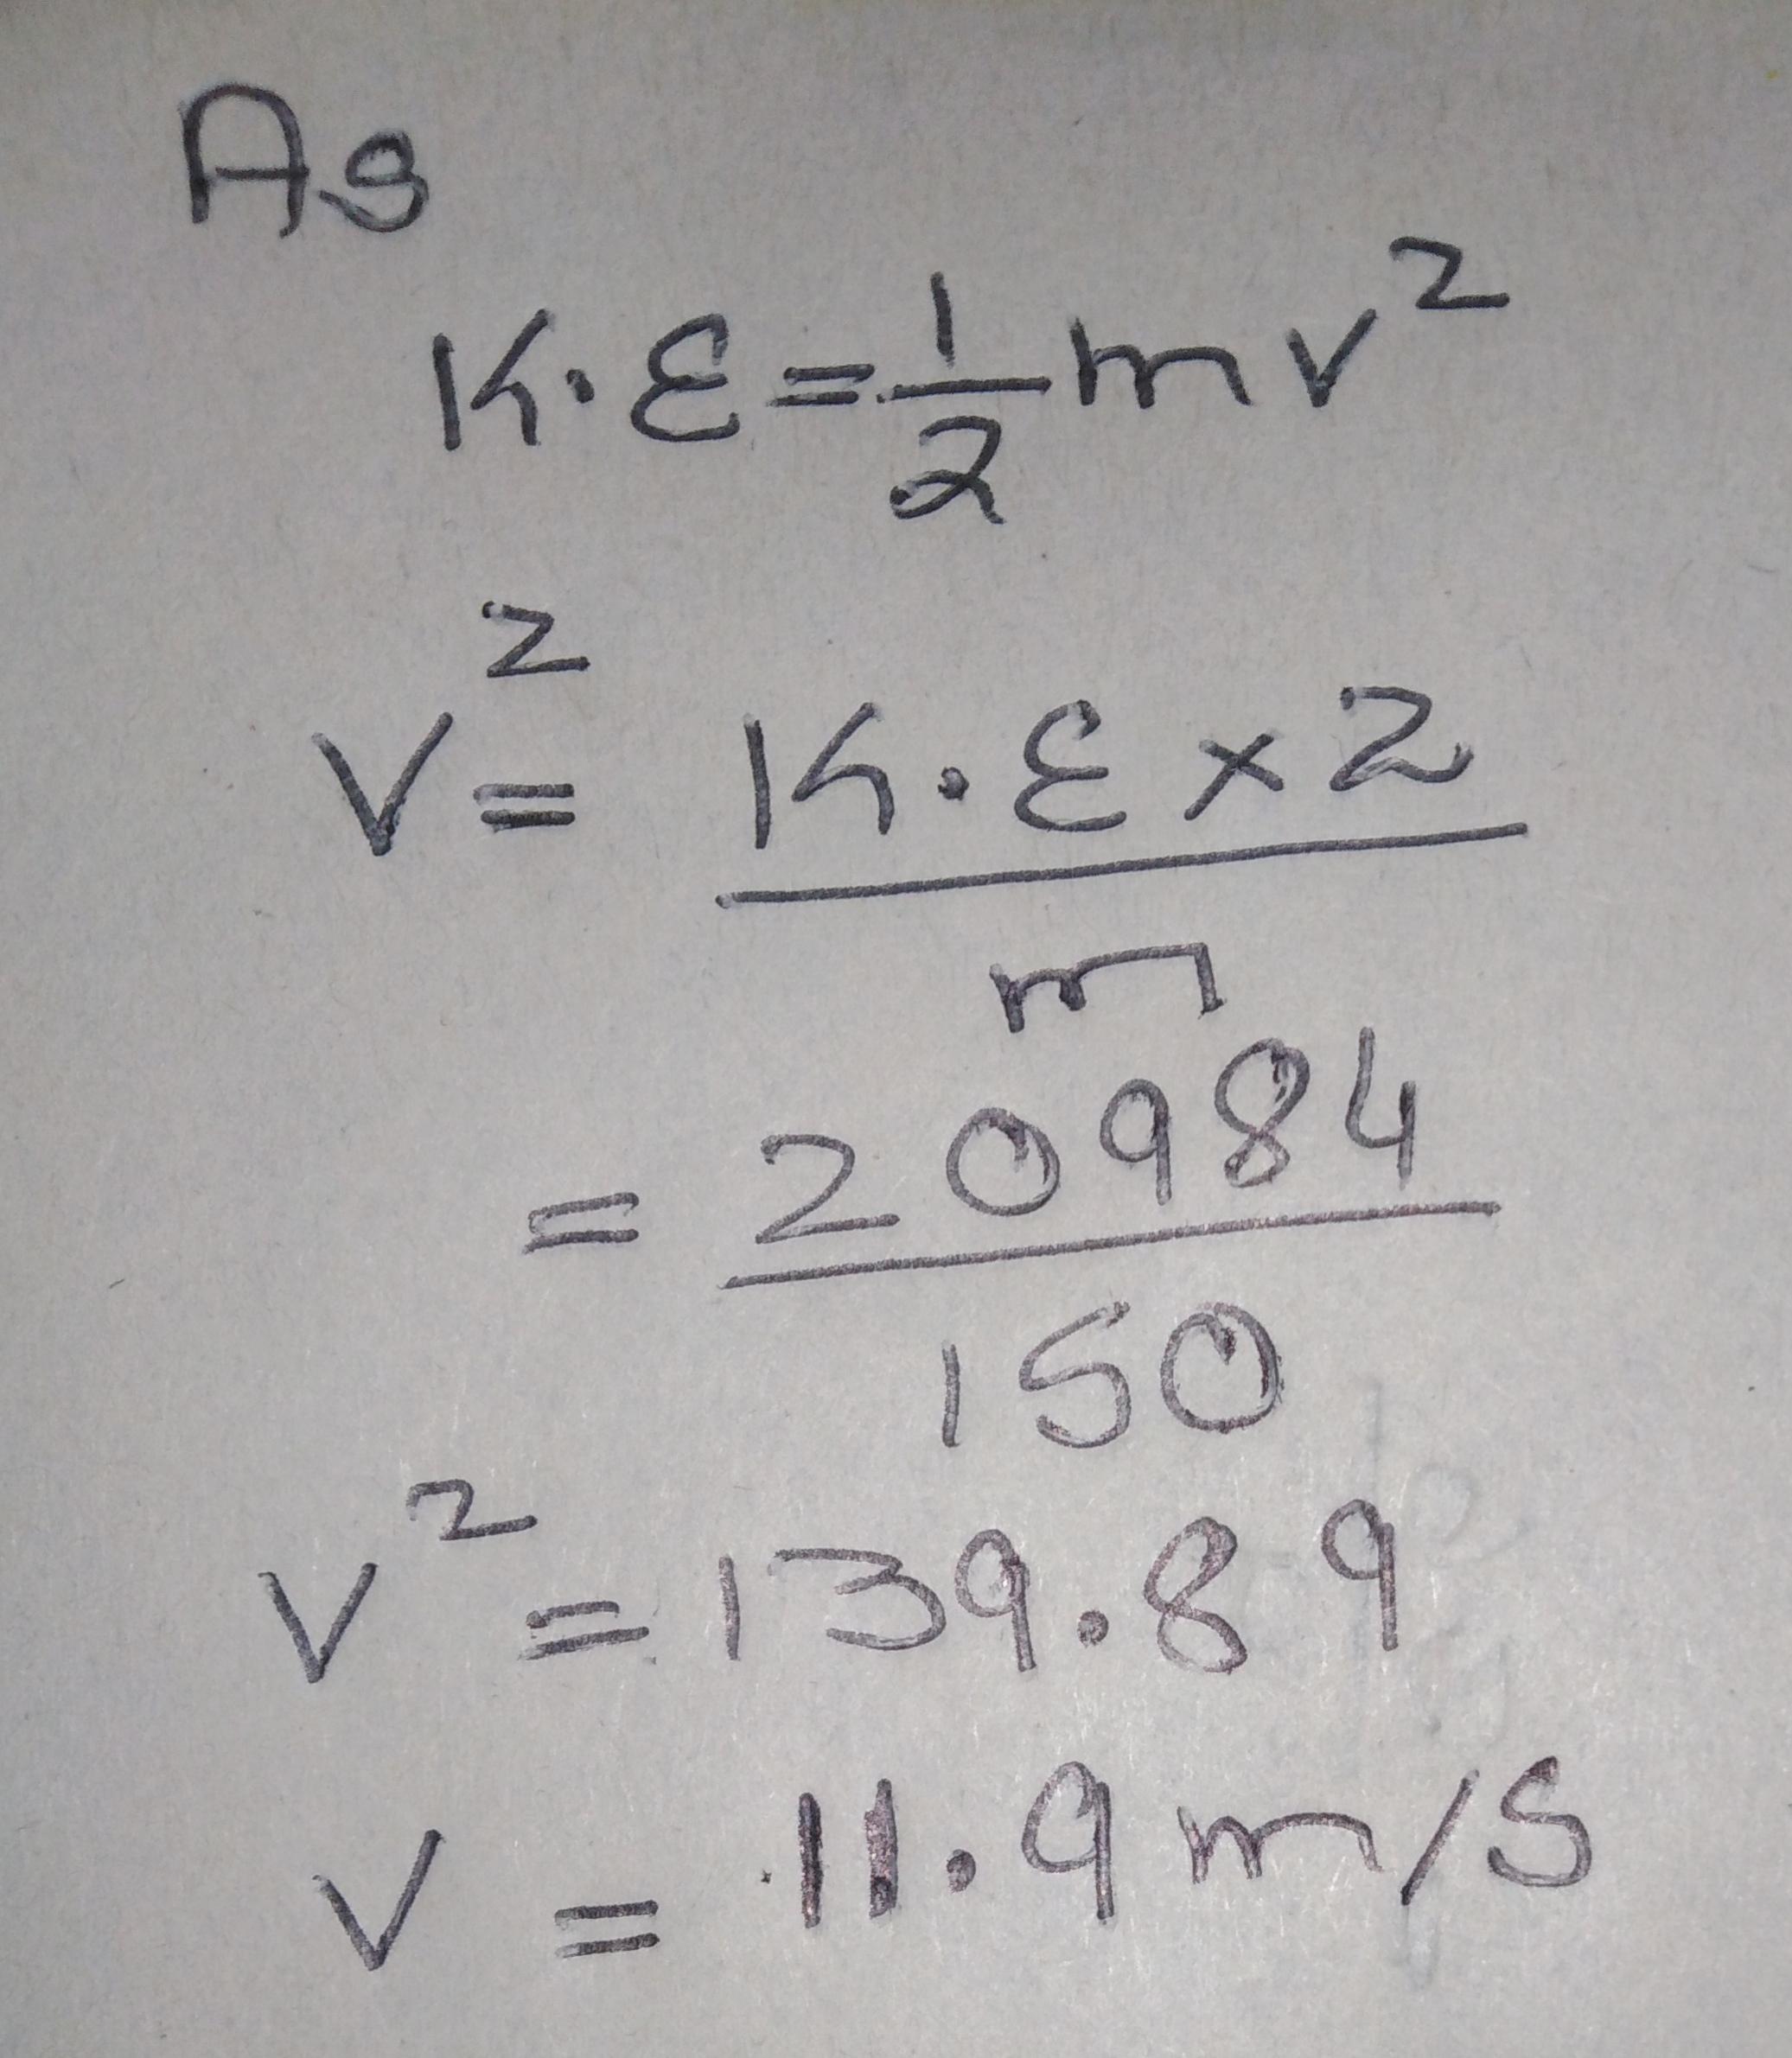 As
K.E = 1/2 mv²
V² = K.E × 2 / m
= 20984 / 150
V² = 139.89
V = 11.9 m/s